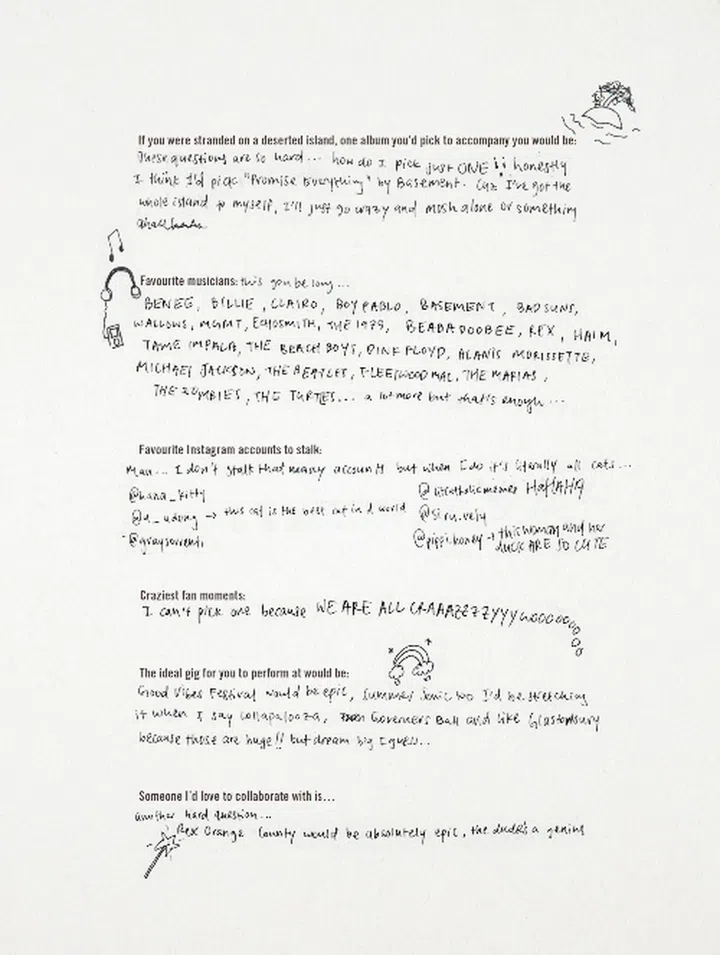 If you were stranded on a deserted island, one album you'd pick to accompany you would be:
These questions are so hard... how do I pick just ONE !! honestly
I think I'd pick "Promise Everything" by Basement. Cuz I've got the
whole island to myself, I'll just go crazy and mosh alone or something
Favourite musicians: this gon be long...
BENEE, BILLIE, CLAIRO, BOY PABLO, BASEMENT, BAD SUNS,
WALLOWS, MGMT, ECHOSMITH, THE 1975, BEABADOOBEE, REX, HAIM,
TAME IMPALA, THE BEACH BOYS, PINK FLOYD, ALANIS MORISSETTE,
MICHAEL JACKSON, THE BEATLES, FLEETWOOD MAC, THE MARIAS,
THE ZOMBIES, THE TURTLES... a lot more but that's enough...
Favourite Instagram accounts to stalk:
Man... I don't stalk that many accounts but when I do it's literally all cats...
@hana_kitty
@litcatholicmemes HAHAHA
@d_udong → this cat is the best cat in d world
@siru.vely
@graysorrenti
@pippi.honey → this woman and her
DUCK ARE SO CUTE
Craziest fan moments:
I can't pick one because WE ARE ALL CRAAAZZZZYYYWOOOOOOOOO
The ideal gig for you to perform at would be:
Good Vibes Festival would be epic, Summer Sonic too I'd be stretching
it when I say Lollapalooza, Governers Ball and like Glastonbury
because those are huge!! but dream big I guess..
Someone I'd love to collaborate with is...
another hard question...
Rex Orange County would be absolutely epic, the dude's a genius